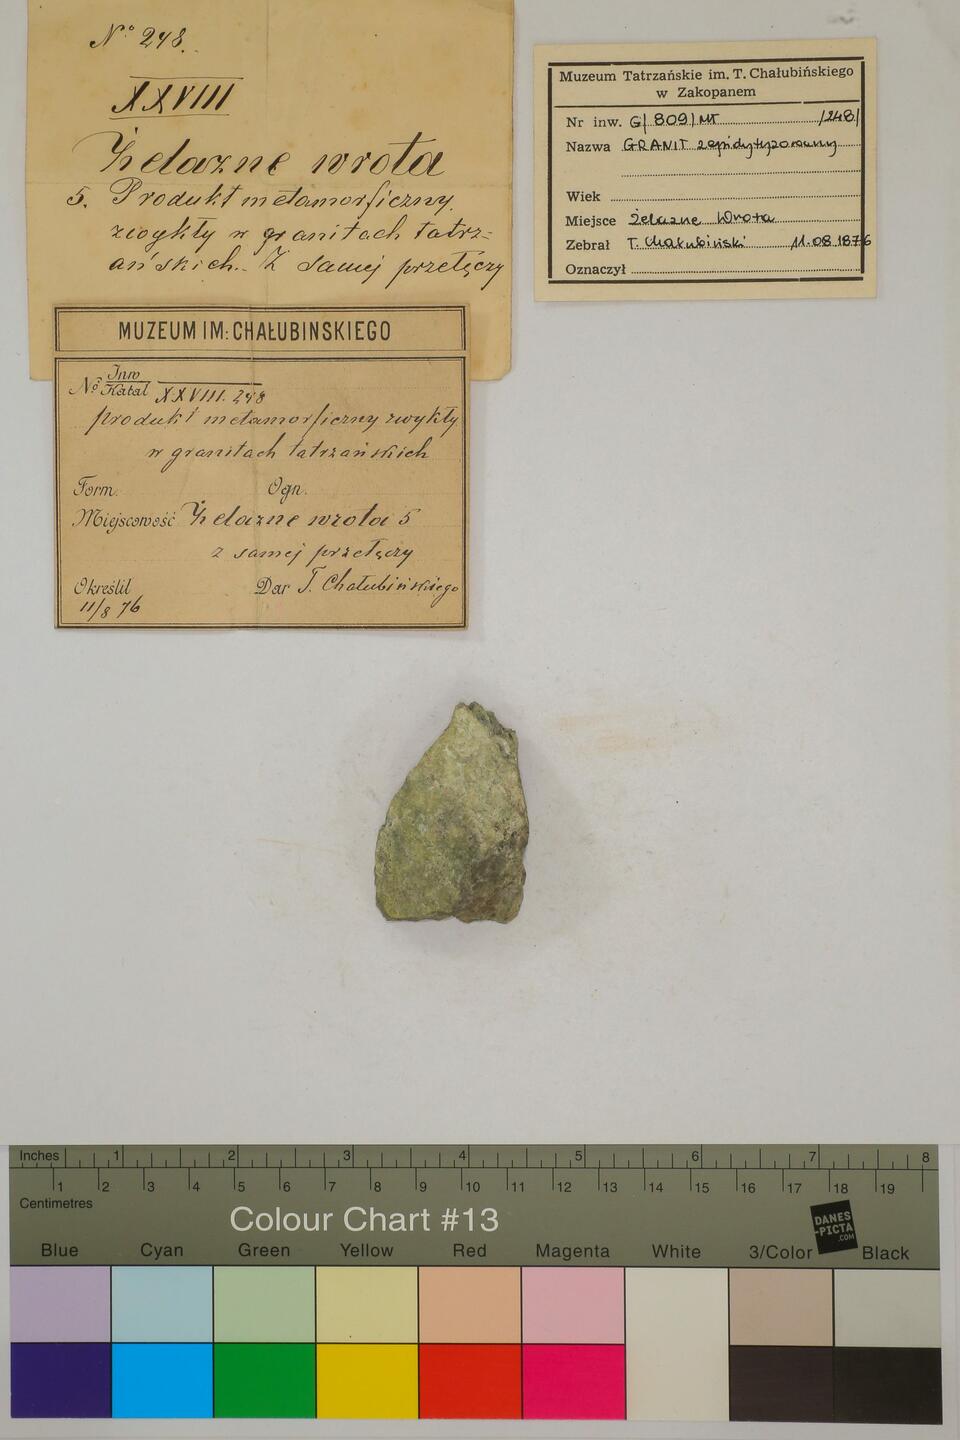 Nº 248.
XXVIII
Żelazne wrota
5. Produkt metamorficzny
zwykły w granitach tatrz=
ańskich. Z samej przełęczy
Muzeum Tatrzańskie im. T. Chałubińskiego
w Zakopanem
Nr inw. G/809/MT /248/
Nazwa GRANIT zepidytyzowany
Wiek
Miejsce Żelazne Wrota
Zebrał T. Chałubiński 11.08.1876
Oznaczył
MUZEUM IM: CHAŁUBINSKIEGO
Nº Inw
Katal XXVIII. 248
produkt metamorficzny zwykły
w granitach tatrzańskich
Form. Ogn.
Miejscowość Żelazne wrota 5
z samej przełęczy
Określił Dar T. Chałubińskiego
11/8 76
Inches 1 2 3 4 5 6 7 8
1 2 3 4 5 6 7 8 9 10 11 12 13 14 15 16 17 18 19
Centimetres
Colour Chart #13
DANES
-PICTA
.COM
Blue Cyan Green Yellow Red Magenta White 3/Color Black